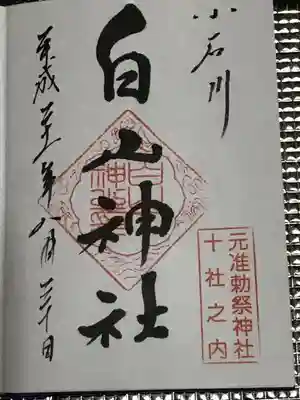 小石川
元准勅祭神社
十社之内
白山神社
平成二十一年八月三十日